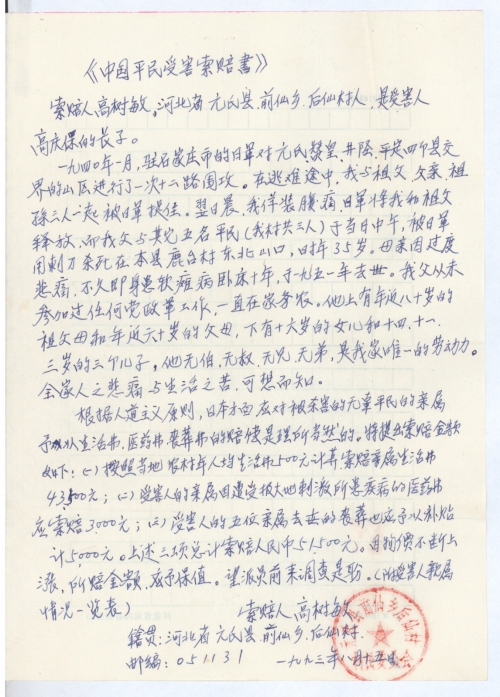 《中国平民受害索赔書》
索赔人高树敏，河北省元氏县前仙乡后仙村人，是受害人
高庆保的长子。
一九四〇年一月，驻石家庄市的日軍对元氏赞皇、井陉、平定四个县交
界的山区进行了一次十二路围攻。在逃难途中，我与祖父、父亲、祖
孙三人一起被日軍捉住。翌日晨，我佯装腹痛，日軍将我和祖父
释放，而我父与其它五名平民（我村共三人）于当日中午，被日軍
用刺刀杀死在本县鹿台村东北山口，时年35岁。母亲因过度
悲痛，不久即身患软瘫病卧床十年，于一九五一年去世。我父从未
参加过任何党政軍工作，一直在家务农。他上有年近八十岁的
祖父母和年近六十岁的父母，下有十六岁的女儿和十四、十一、
三岁的三个儿子，他无伯、无叔、无兄、无弟，是我家唯一的劳动力。
全家人之悲痛与生活之苦，可想而知。
根据人道主义原则，日本方面应对被杀害的无辜平民的亲属
予以生活费、医药费、丧葬费的赔偿是理所当然的。特提出索赔金额
如下：(一)按照当地农村年人均生活费500元计算索赔亲属生活费
43,500元；(二)受害人的亲属因遭受极大地刺激所患疾病的医药费
应索赔3,000元；(三)受害人的五位亲属去世的丧葬也应予以补贴
计5,000元。上述三项总计索赔人民币51,500元。因物價不断上
涨，所赔金额，应予保值。望派员前来调查是盼。（附受害人亲属
情况一览表）
索赔人 高树敏
籍贯：河北省元氏县前仙乡后仙村
邮编：051131
一九九三年八月十五日